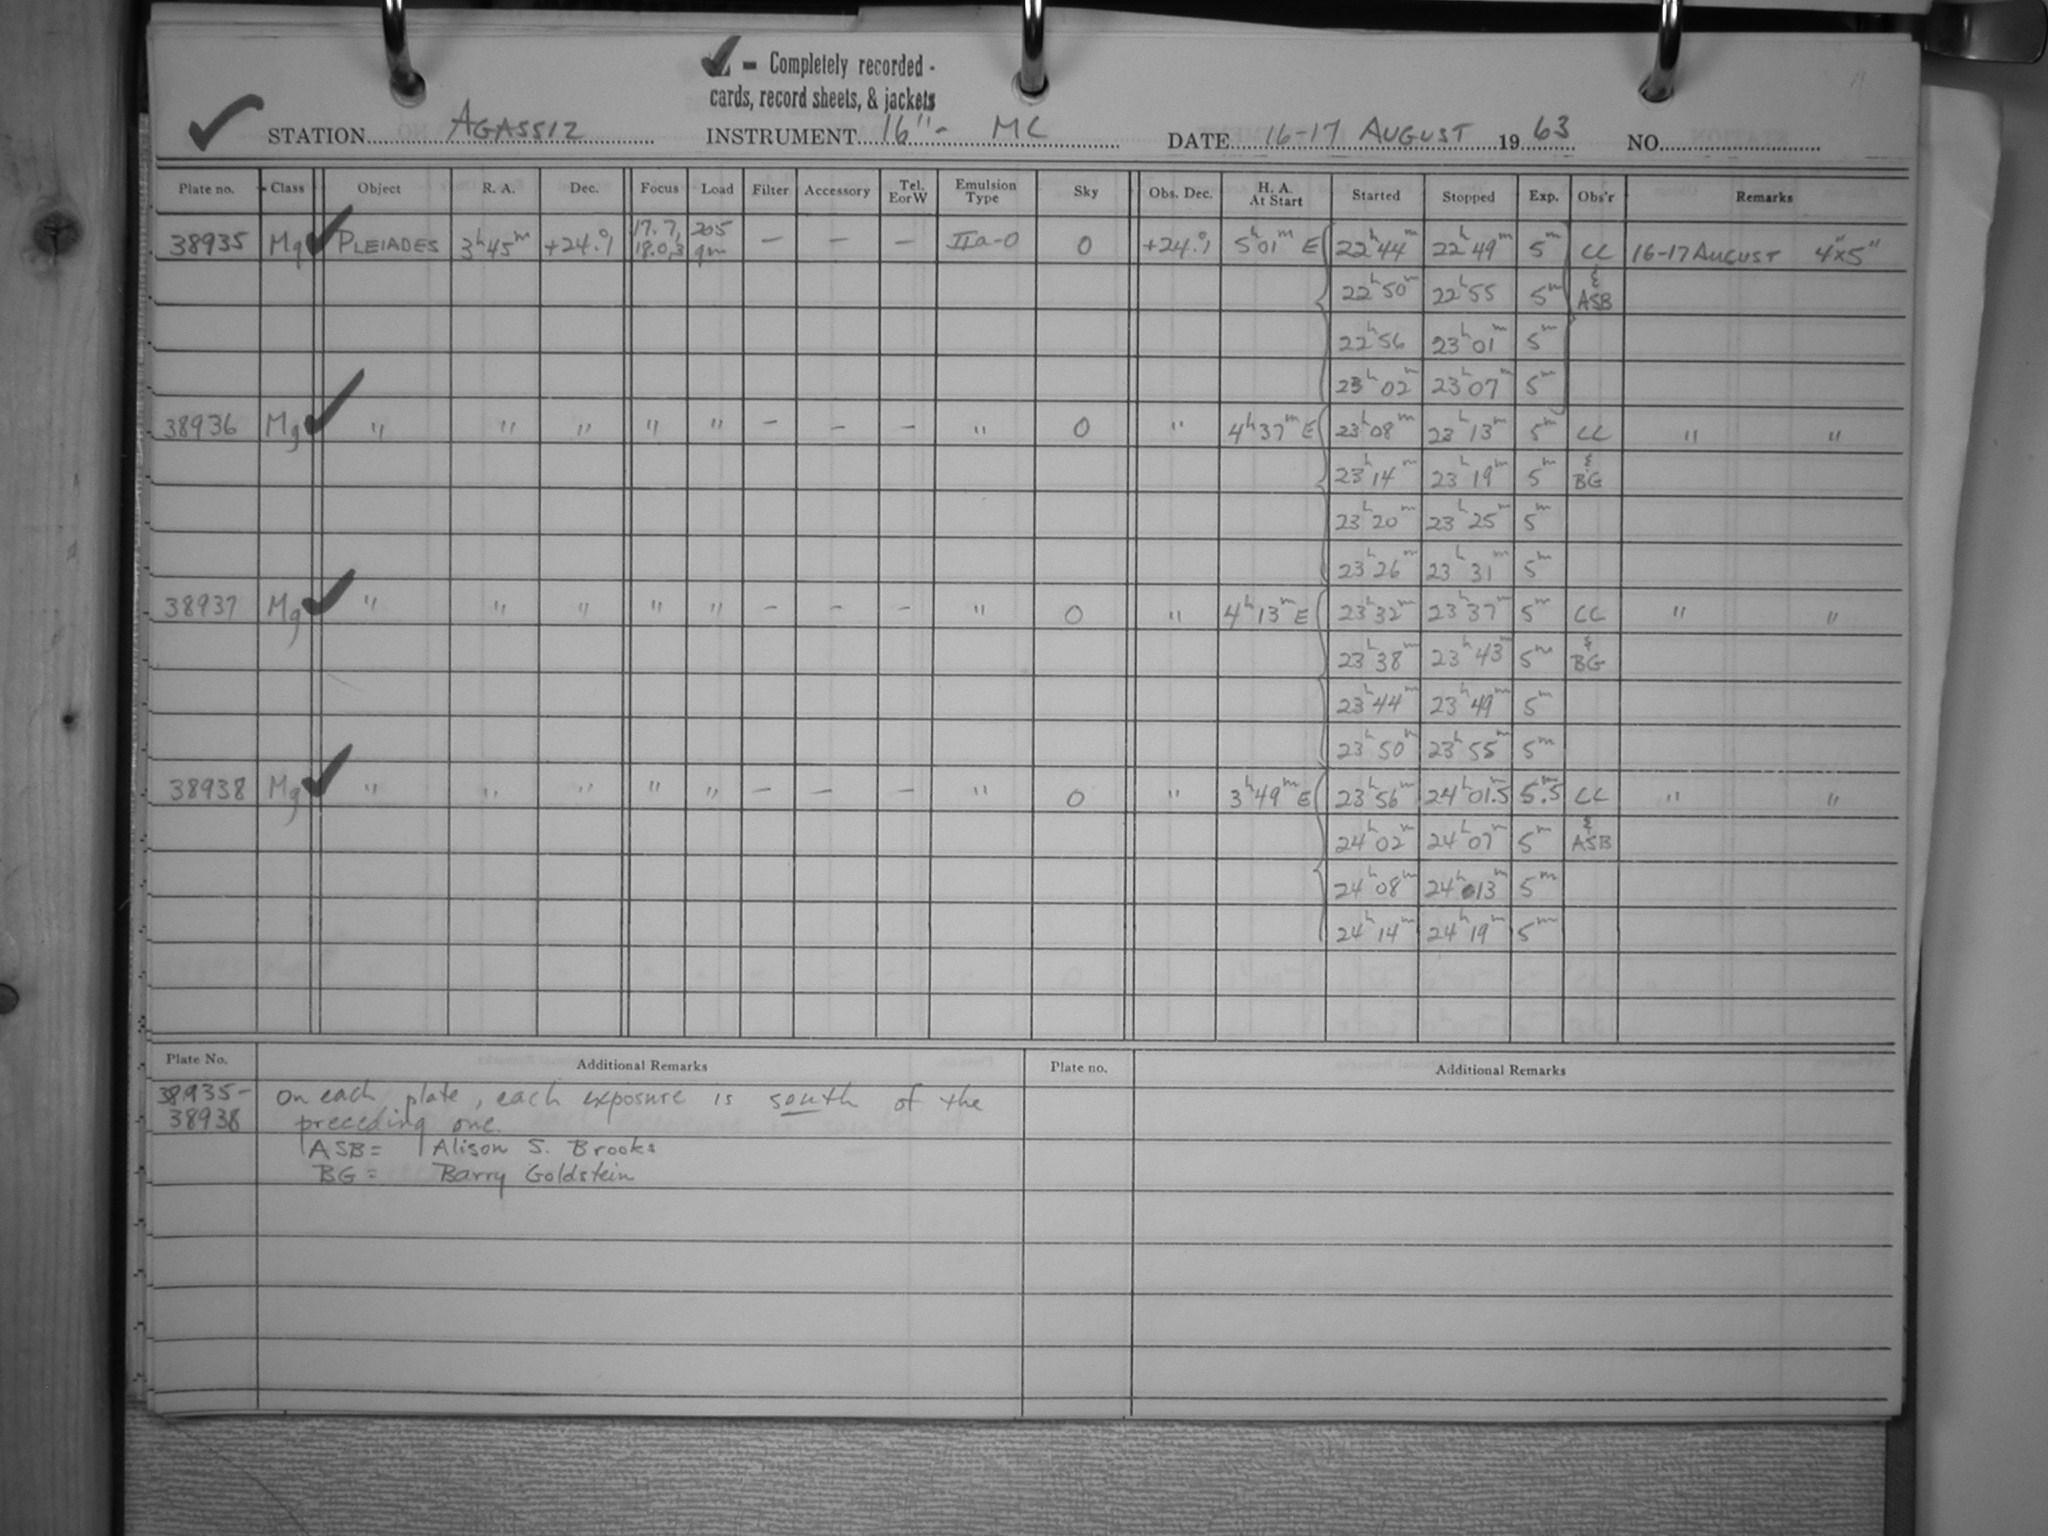 ✓ = Completely recorded -
cards, record sheets, & jackets
STATION AGASSIZ INSTRUMENT 16"- MC DATE 16-17 AUGUST 1963 NO.
Plate no. Class Object R. A. Dec. Focus Load Filter Accessory Tel. E or W Emulsion Type Sky Obs. Dec. H. A. At Start Started Stopped Exp. Obs'r Remarks
38935 Mg PLEIADES 3h45m +24.°1 17.7, 18.0,3 205 gm — — — IIa-O 0 +24.°1 5h01m E 22h44m 22h49m 5m CC 16-17 AUGUST 4"x5"
22h50m 22h55 5m & ASB
22h56 23h01m 5m
23h02m 23h07m 5m
38936 Mg " " " " " — — — " 0 " 4h37m E 23h08m 23h13m 5m CC " "
23h14m 23h19m 5m & BG
23h20m 23h25m 5m
23h26m 23h31m 5m
38937 Mg " " " " " — — — " 0 " 4h13m E 23h32m 23h37m 5m CC " "
23h38m 23h43m 5m & BG
23h44m 23h49m 5m
23h50m 23h55m 5m
38938 Mg " " " " " — — — " 0 " 3h49m E 23h56m 24h01.5 5m.5 CC " "
24h02m 24h07m 5m & ASB
24h08m 24h13m 5m
24h14m 24h19m 5m
Plate No. Additional Remarks Plate no. Additional Remarks
38935- On each plate, each exposure is south of the
38938 preceding one.
ASB = Alison S. Brooks
BG = Barry Goldstein